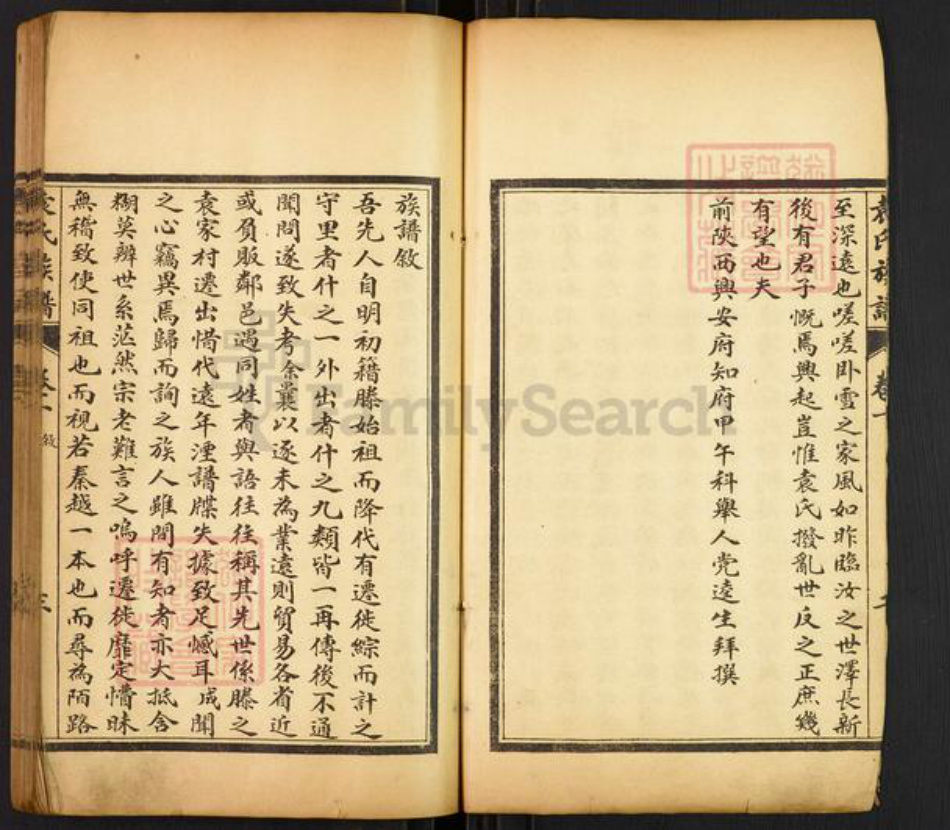 袁氏族譜
卷一
二
至深遠也嗟嗟卧雪之家風如昨臨汝之世澤長新
後有君子慨焉興起豈惟袁氏撥亂世反之正庶幾
有望也夫
前陝西興安府知府甲午科舉人党逵生拜撰
族譜敘
吾先人自明初籍滕始祖而降代有遷徙綜而計之
守里者什之一外出者什之九類皆一再傳後不通
聞問遂致失考余曩以逐末為業遠則貿易各省近
或負販鄰邑遇同姓者與語往往稱其先世係滕之
袁家村遷出惜代遠年湮譜牒失據致足憾耳成聞
之心竊異焉歸而詢之族人雖間有知者亦大抵含
糊莫辨世系茫然宗老難言之嗚呼遷徙靡定懵昧
無稽致使同祖也而視若秦越一本也而尋為陌路
袁氏族譜
卷一
敘
三
FamilySearch